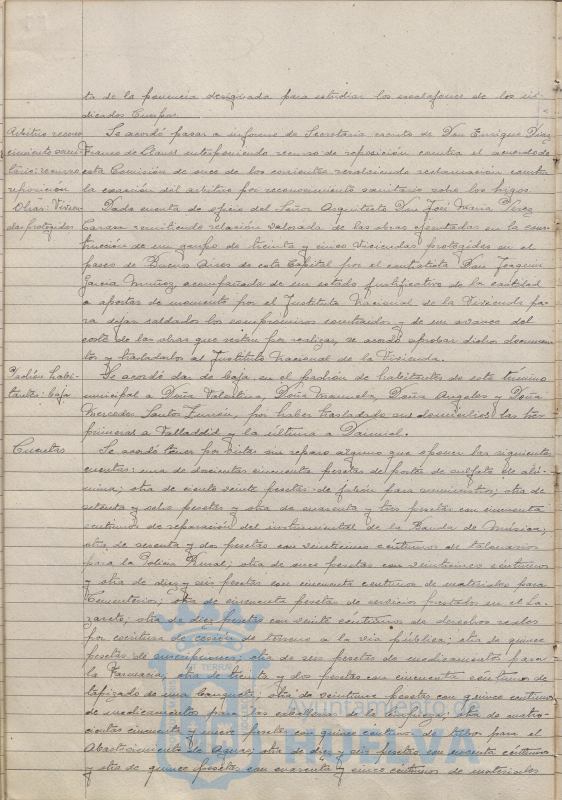 ta de la ponencia designada para estudiar los escalafones de los in-
dicados Cuerpos.
Arbitrio recono-
cimiento sani-
tario: recurso
reposición
Se acordó pasar a informe de Secretaría escrito de Don Enrique Díaz
Franco de Llanos interponiendo recurso de reposición contra el acuerdo de
esta Comisión de once de los corrientes resolviendo reclamación contra
la exacción del arbitrio por reconocimiento sanitario sobre los higos.
Obras Vivien-
das protegidas
Dada cuenta de oficio del Señor Arquitecto Don José María Pérez
Carasa remitiendo relación valorada de las obras ejecutadas en la cons-
trucción de un grupo de treinta y cinco viviendas protegidas en el
paseo de Buenos Aires de esta Capital por el contratista Don Joaquín
García Muñoz acompañada de un estado justificativo de la cantidad
a aportar de momento por el Instituto Nacional de la Vivienda pa-
ra dejar saldados los compromisos contraidos y de un avance del
coste de las obras que restan por realizar, se acordó aprobar dichos documen-
tos y trasladarlos al Instituto Nacional de la Vivienda.
Padrón habi-
tantes: baja
Se acordó dar de baja en el padrón de habitantes de este término
municipal a Doña Valentina, Doña Manuela, Doña Angeles y Doña
Mercedes Santos por haber trasladado sus domicilios las tres
primeras a Valladolid y la última a Daimiel.
Cuentas
Se acordó tener por vistas sin reparo alguno que oponer las siguientes
cuentas: una de doscientas cincuenta pesetas de portes de sulfato de alú-
mina; otra de ciento veinte pesetas de jabón para suministros; otra de
setenta y seis pesetas y otra de cuarenta y tres pesetas con cincuenta
centimos de reparación del instrumental de la Banda de Música;
otra de sesenta y dos pesetas con veinticinco céntimos de talonarios
para la Policía Rural; otra de once pesetas con veinticinco centimos
y otra de diez y seis pesetas con cincuenta centimos de materiales para
Cementerios; otra de cincuenta pesetas de servicios prestados en el La-
zareto; otra de diez pesetas con veinte centimos de derechos reales
por escritura de cesión de terreno a la vía pública; otra de quince
pesetas de suscripciones; otra de seis pesetas de medicamentos para
la Farmacia; otra de treinta y dos pesetas con cincuenta céntimos de
tapizado de una banqueta; otra de veintiune pesetas con quince centimos
de medicamentos para las caballerias de la Limpieza; otra de cuatro-
cientas cincuenta y nueve pesetas con quince centimos de tubos para el
Abastecimiento de Aguas; otra de diez y seis pesetas con noventa centimos
y otra de quince pesetas con cuarenta y cinco centimos de materiales
Ayuntamiento de
HUELVA